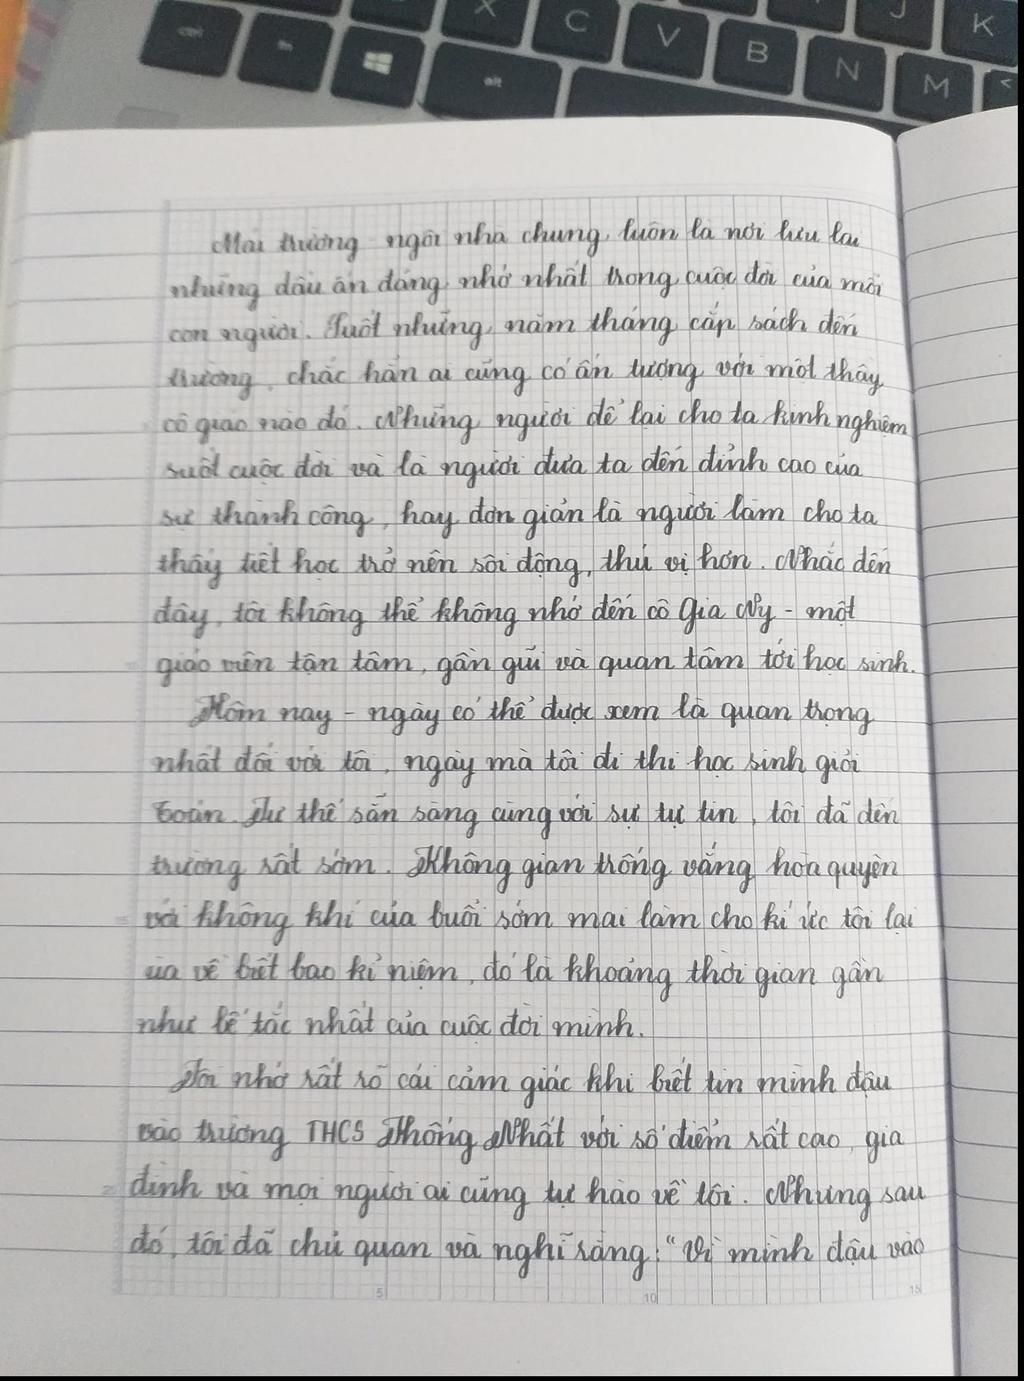 ctrl
fn
alt
X
C
V
B
N
M
J
K
<
Mái trường - ngôi nhà chung, luôn là nơi lưu lại
những dấu ấn đáng nhớ nhất trong cuộc đời của mỗi
con người. Suốt những năm tháng cắp sách đến
trường, chắc hẳn ai cũng có ấn tượng với một thầy
cô giáo nào đó. Những người để lại cho ta kinh nghiệm
suốt cuộc đời và là người đưa ta đến đỉnh cao của
sự thành công, hay đơn giản là người làm cho ta
thấy tiết học trở nên sôi động, thú vị hơn. Nhắc đến
đây, tôi không thể không nhớ đến cô Gia Ny - một
giáo viên tận tâm, gần gũi và quan tâm tới học sinh.
Hôm nay - ngày có thể được xem là quan trọng
nhất đối với tôi, ngày mà tôi đi thi học sinh giỏi
toán. Tư thế sẵn sàng cùng với sự tự tin, tôi đã đến
trường rất sớm. Không gian trống vắng hòa quyện
với không khí của buổi sớm mai làm cho kí ức tôi lại
ùa về biết bao kỉ niệm, đó là khoảng thời gian gần
như bế tắc nhất của cuộc đời mình.
Tôi nhớ rất rõ cái cảm giác khi biết tin mình đậu
vào trường THCS Thống Nhất với số điểm rất cao, gia
đình và mọi người ai cũng tự hào về tôi. Nhưng sau
đó, tôi đã chủ quan và nghĩ rằng: "Vì mình đậu vào
5
10
15